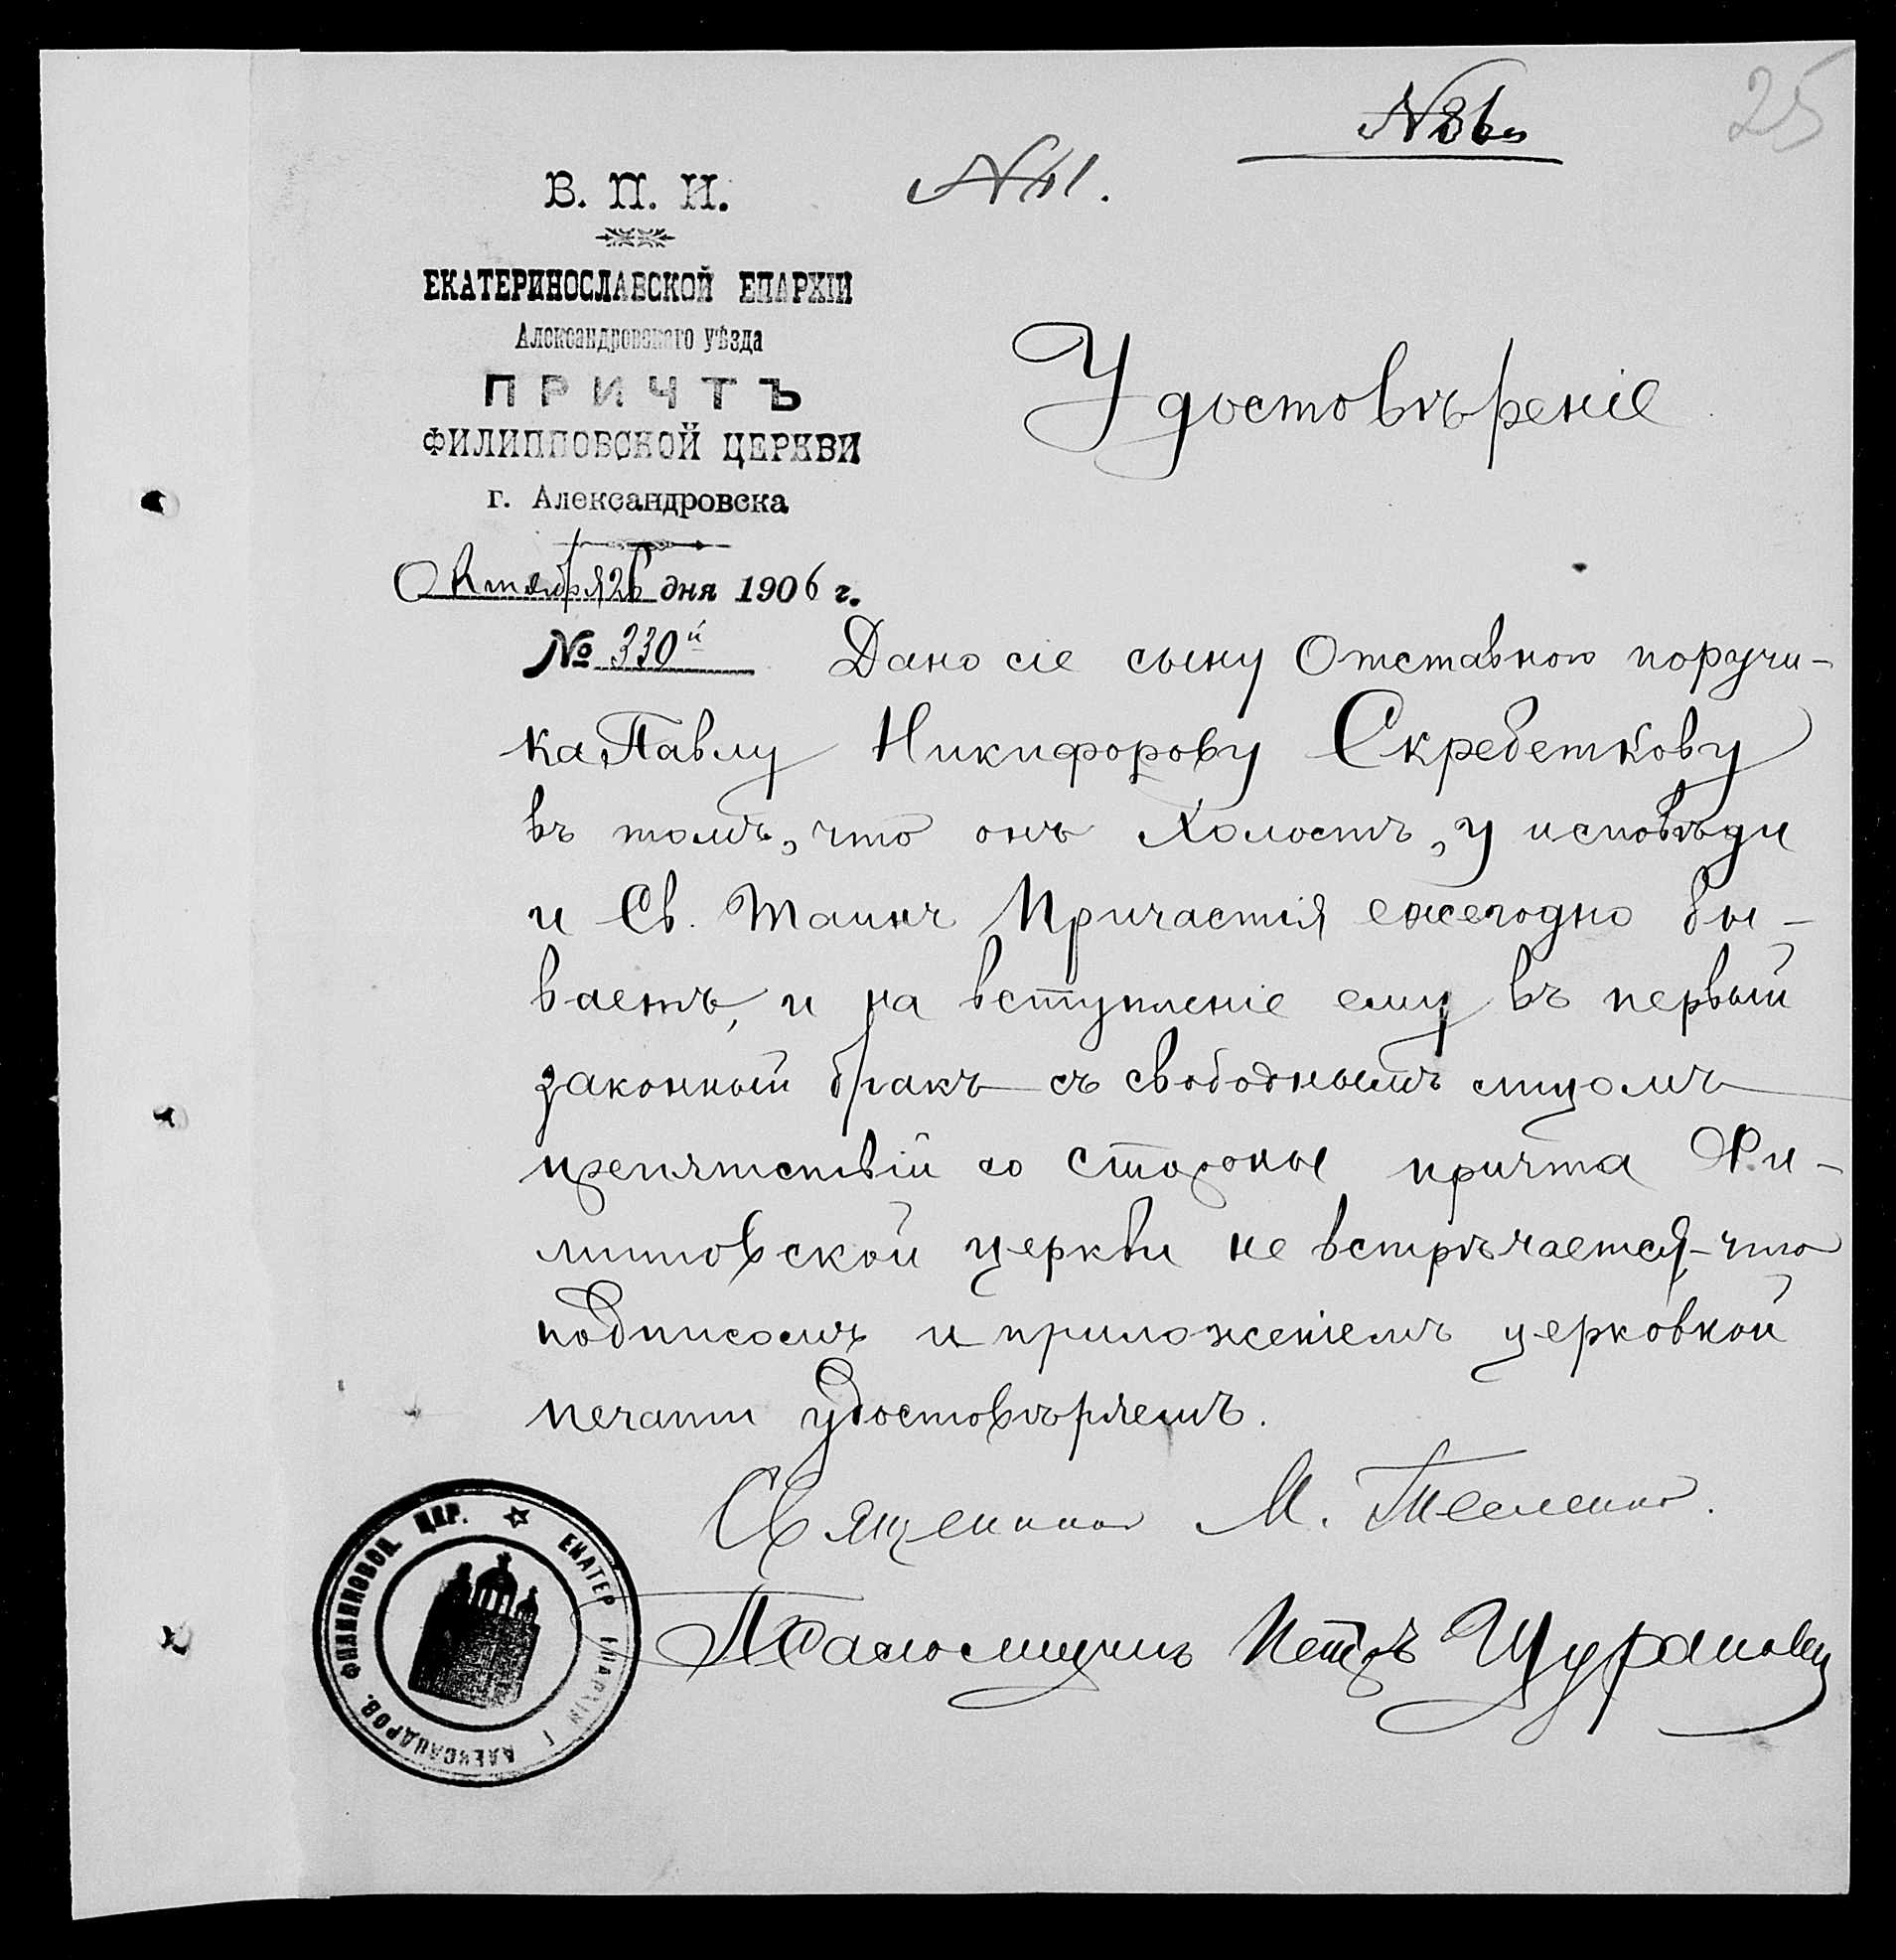 25
№ 41.
В. П. И.
ЕКАТЕРИНОСЛАВСКОЙ ЕПАРХІИ
Александровскаго уѣзда
ПРИЧТЪ
ФИЛИППОВСКОЙ ЦЕРКВИ
г. Александровска
Октября 26 дня 1906 г.
№ 330й
Удостовѣреніе
Дано сіе сыну Отставного поручи-
ка Павлу Никифорову Скребеткову
въ томъ, что онъ Холостъ, у исповѣди
и Св. Таинъ Причастія ежегодно бы-
ваетъ, и на вступленіе ему въ первый
законный бракъ съ свободнымъ лицомъ
препятствій со стороны причта Фи-
липовской церкви не встрѣчается, что
подписомъ и приложеніемъ церковной
печати удостовѣряемъ.
Священникъ М.
Псаломщикъ Петръ
ЕКАТЕР ЕПАРХІИ Г АЛЕКСАНДРОВ. ФИЛИППОВСК. ЦЕР.